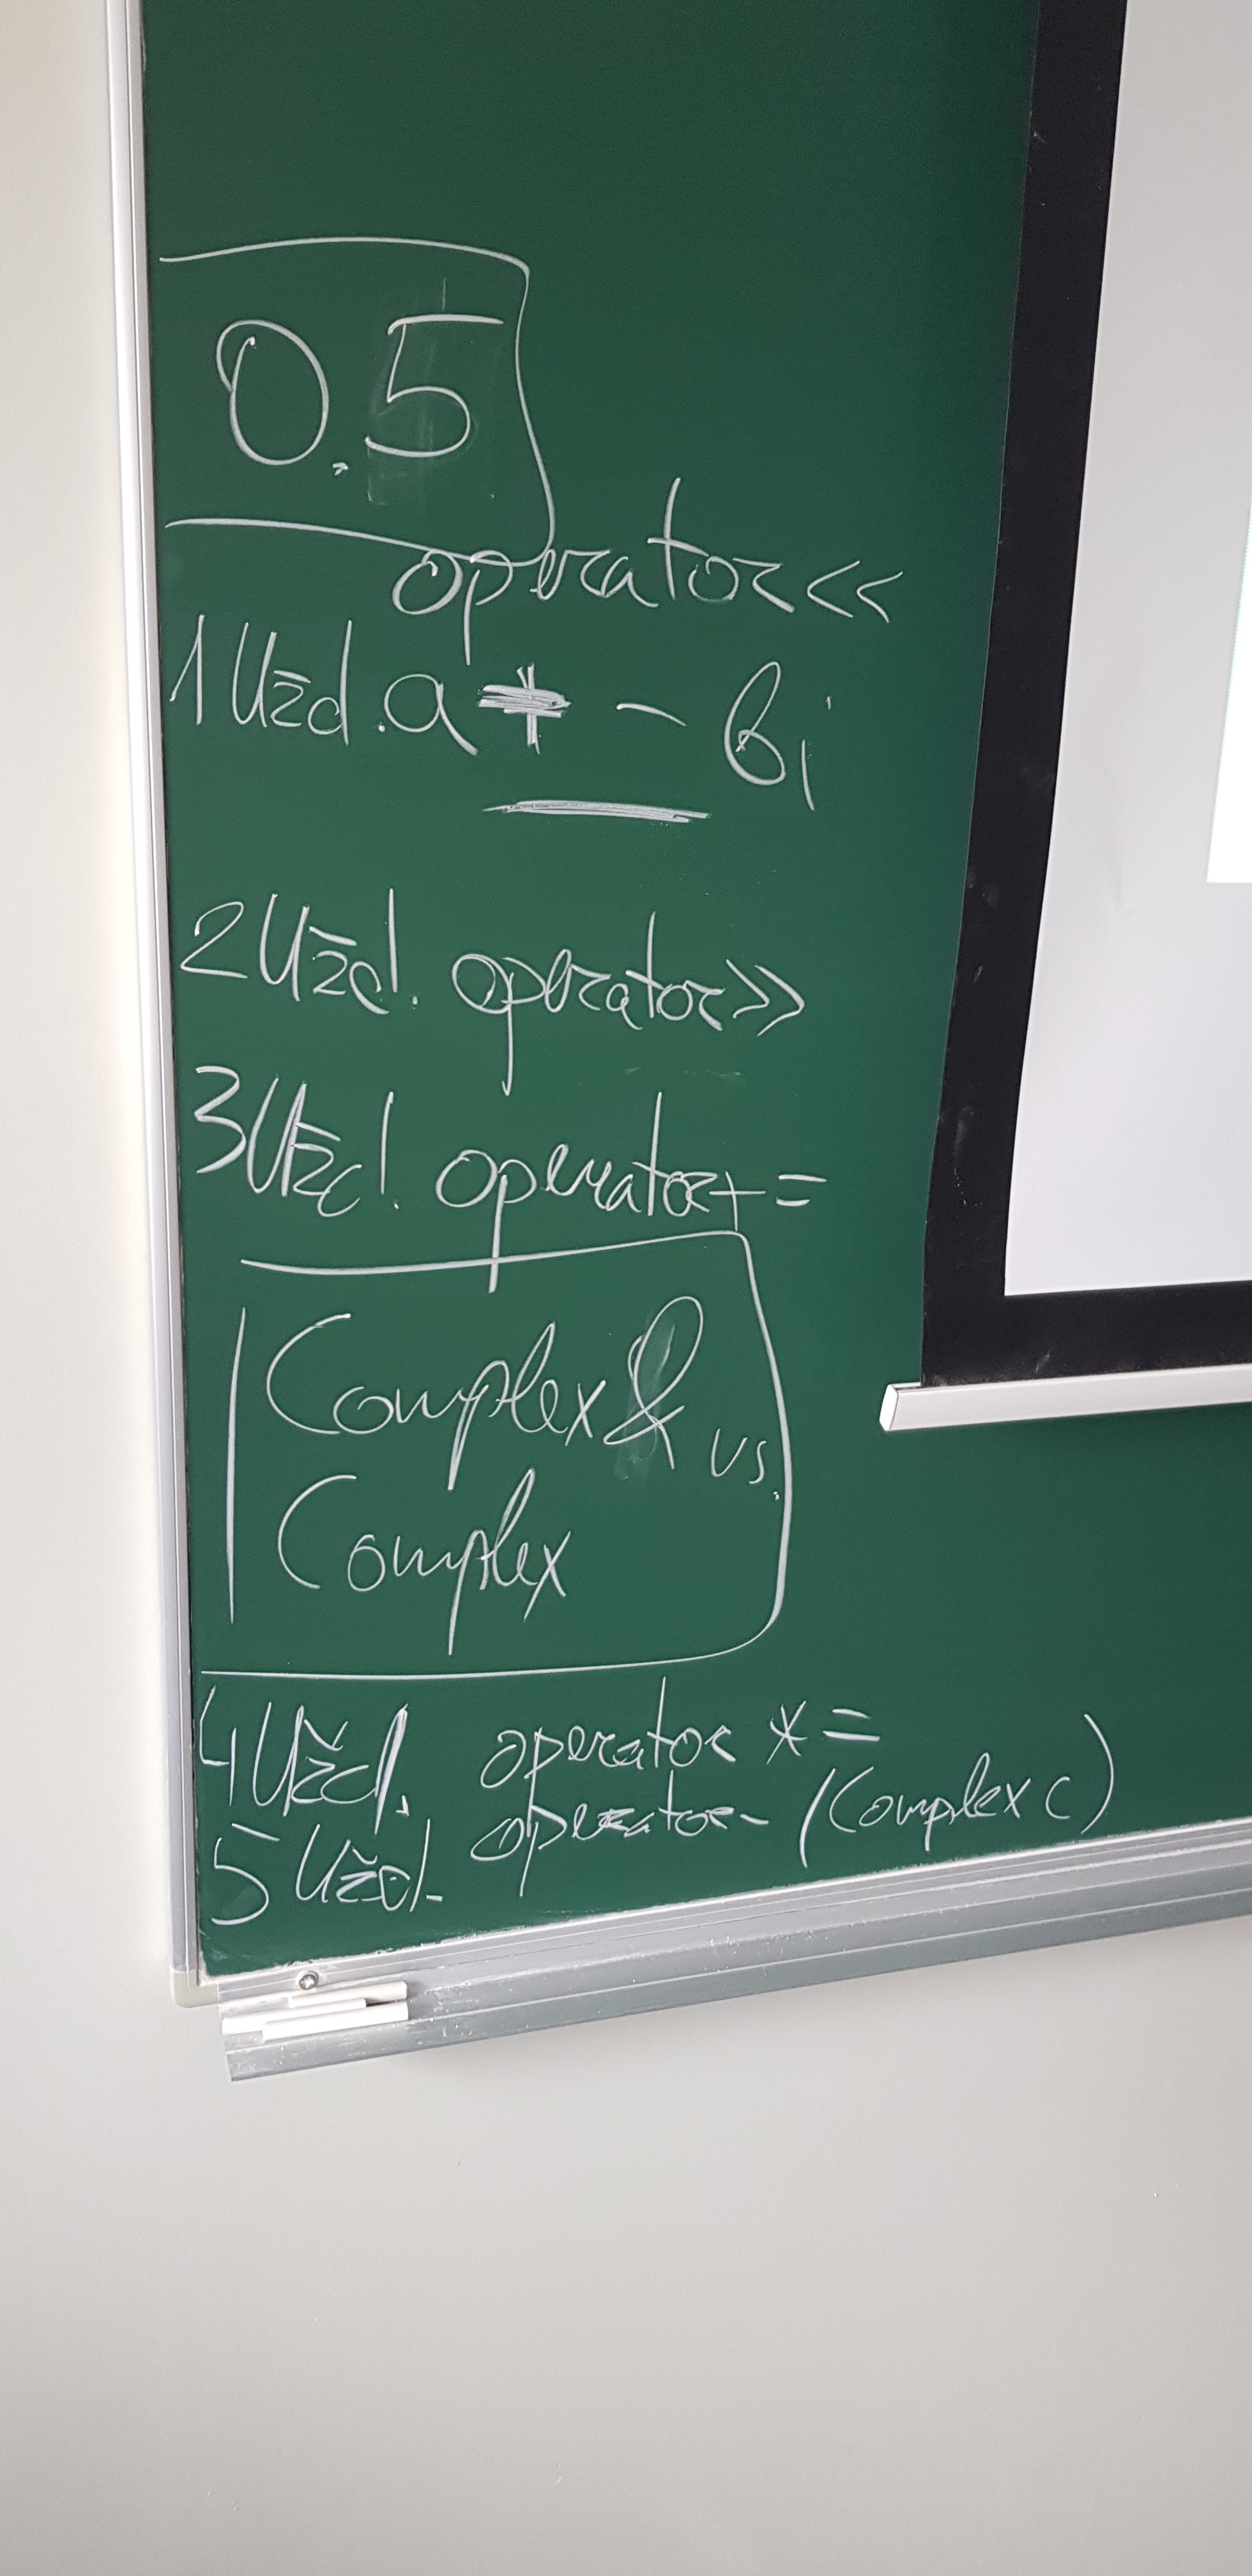 0.5
operator<<
1 Užd. a + - bi
2 Užd. operator>>
3 Užd. operator+=
Complex& vs.
Complex
4 Užd. operator *=
5 Užd. operator- (Complex c)